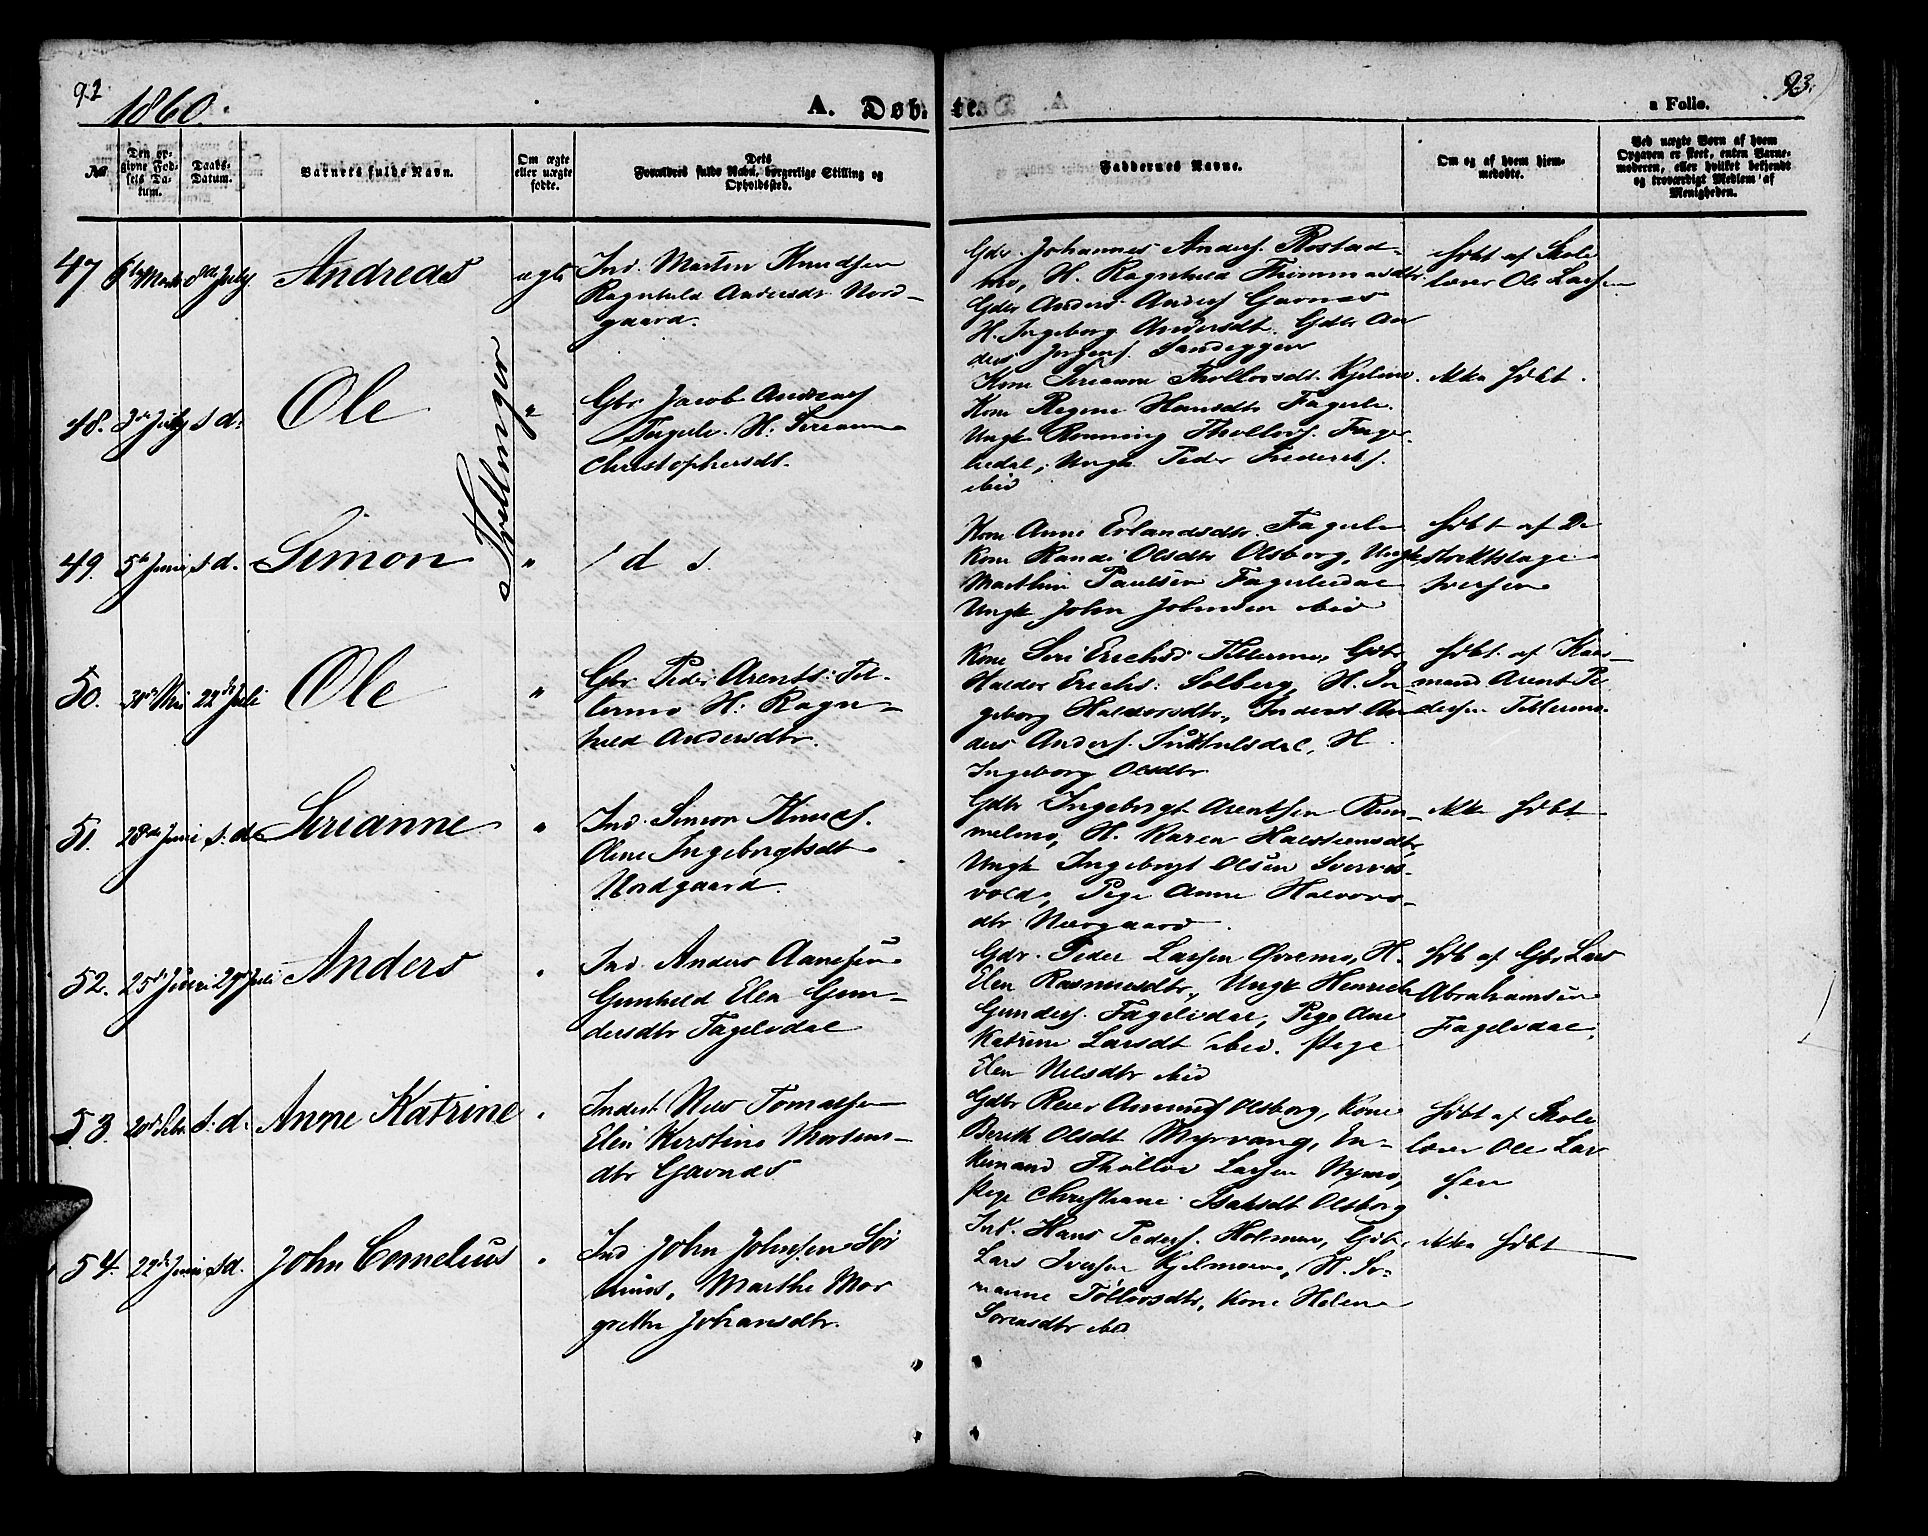 92
1860.
A. Døb-
te.
a Folio.
93.
No.
Den op-
givne Fød-
sels Da-
tum.
Daabs-
Datum.
Barnets fulde Navn.
Om ægte
eller uægte
fødte.
Dets
Forældres fulde Navn, borgerlige Stilling og
Opholdssted.
Faddernes Navne.
Om og af hvem hjem-
medøbte.
Ved uægte Børn af hvem
Opgaven er skeet, enten Barne-
moderen, eller hvilket bekjendt
og troværdigt Medlem af
Menigheden.
47 6te Marts 8de July Andreas ægte
Ind. Morten Knudsen
Ragnhild Andersdtr Nord-
gaard.
Gdbr. Johannes Anders. Rostad-
mo, H. Ragnhild Thommasdtr
Gdbr Anders Anders. Gavnes
H. Ingeborg Andersdt. Gdbr An
ders Jørgens. Sandeggen
døbt af Skole
lærer Ole Larsen
48. 3de July s d. Ole "
Tvillinger
Gbr Jacob Andreas
Fagerli. H: Serianne
Christophersdt.
Kone Serianne Thollovsdt. Kjelmo.
Kone Regine Hansdtr Fagerli.
Ungk Ronning Thollovs. Fager-
lidal, Ungk. Peder Frederiks.
ibid
ikke døbt.
49. 5te Juni s. d. Simon "
d s.
Kone Anne Erlandsdtr. Fagerli
Kone Randi Olsdtr Olsborg, Ungk
Marthin Paulsen Fagerlidal
Ungk John Johnsen ibid
døbt af Di
striktslæge
Iversen
50. 30te Mai 22de Juli Ole "
Gbr. Peder Arents. Tel-
lermo H: Ragn-
hild Andersdtr.
Kone Siri Erichsd Tellermo, Gdbr
Haldor Erichs: Solberg, H. In-
geborg Haldorsdtr, Inderst An
ders Anders. , H
Ingeborg Olsdtr
døbt af Kaar-
mand Arent Pe
dersen Tellermo.
51. 28de Juni s. d. Serianne "
Ind. Simon Knuds.
Oline Ingebrigtsdt
Nordgaard
Gdbr Ingebrigt Arentsen Rum-
melmo, H. Karen Halsteensdtr,
Ungk Ingebrigt Olsen Sverres-
vold, Pige Anne Halvors-
dtr Nergaard
ikke døbt
52. 25de Juni 29de Juli Anders "
Ind. Anders Aanesen
Gunhild Elen Gun-
dersdtr Fagelidal
Gdbr. Peder Larsen Øvremo, H.
Elen Rasmusdtr, Ungk Henrich
Gunders. Fagelidal, Pige Ane
Katrine Larsdt ibid. Pige
Elen Nilsdtr ibid
døb af Gbr Lars
Abrahamsen
Fagelidal.
53. 20de Febr. s. d. Anne Katrine "
Inderst Nils Tomassen
Elen Kirstine Mortens-
dtr Gavnes
Gdbr Reier Amunds Olsborg, Kone
Berith Olsdt Myrvang, En-
kemand Thollov Larsen Nymo,
Pige Christiane Isaksdt Olsborg
døbt af Skole
lærer Ole Lar
sen
54. 22de Juni s d. John Cornelius "
Ind John Johnsen Sør
, Marthe Mar
grethe Johansdtr.
Ind. Hans Peders. Holmen, Gdb.
Lars Iversen Kjelmoen, H. Se-
rianne Tollovsdtr, Kone Helene
Sørensdtr ibid
ikke døbt